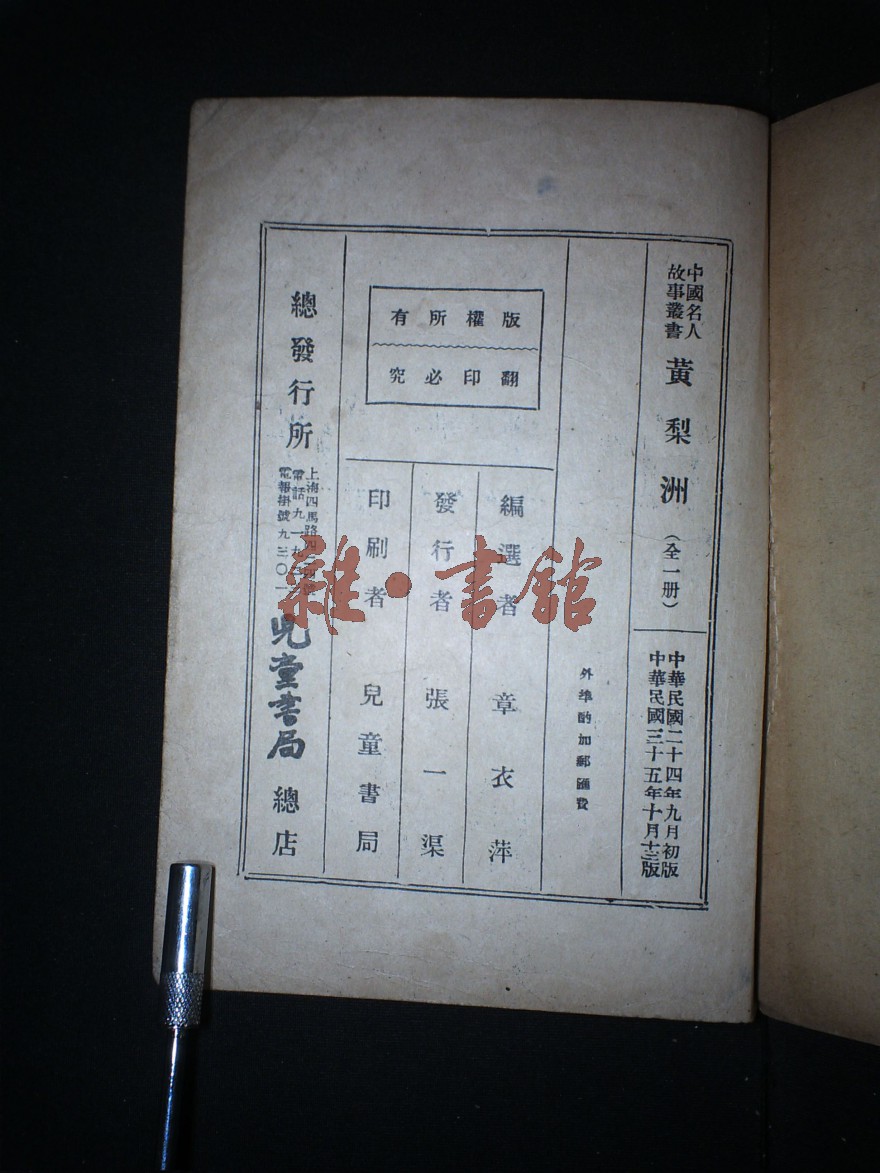 中國名人
故事叢書
黃梨洲
（全一册）
中華民國二十四年九月初版
中華民國三十五年十月十三版
外埠酌加郵匯費
版權所有
翻印必究
編選者 章衣萍
發行者 張一渠
印刷者 兒童書局
總發行所
上海四馬路四
電話九一九
電報掛號九三〇一
兒童書局
總店
雜·書館